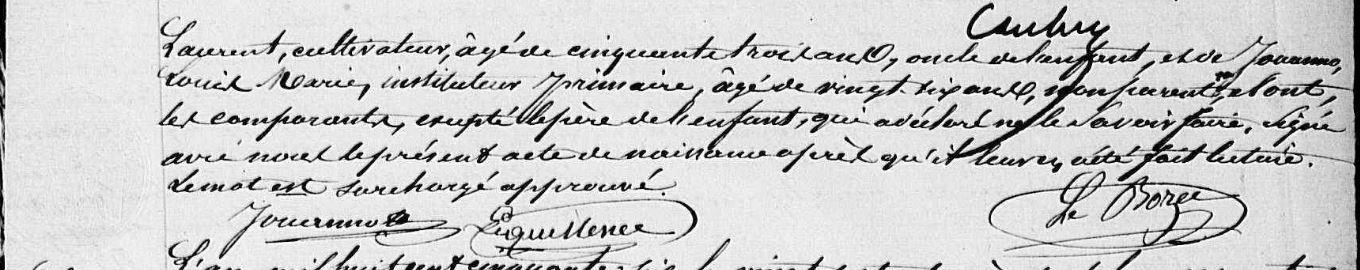 Laurent, cultivateur, âgé de cinquante trois ans, oncle de l'enfant, et de Jouanno,
Louis Marie, instituteur primaire, âgé de vingt six ans, non parent, et ont,
les comparants, excepté le père de l'enfant, qui a déclaré ne le savoir faire, signé
avec nous le présent acte de naissance après qu'il leur en a été fait lecture.
Le mot est surchargé approuvé.
Jouanno Le Borgne
L'an mil huit cent cinquante six le vingt